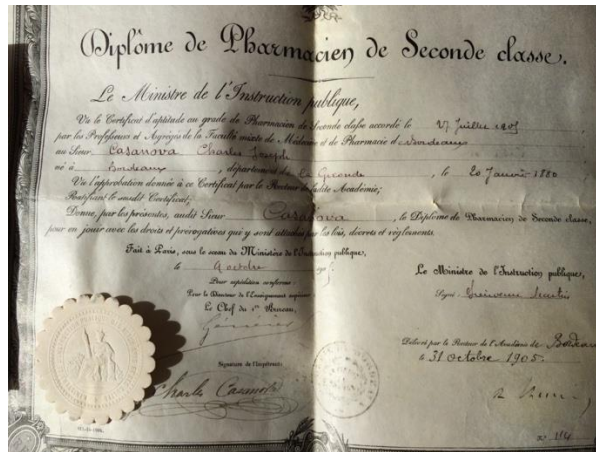 Diplôme de Pharmacien de Seconde classe.
Le Ministre de l'Instruction publique,
Vu le Certificat d'aptitude au grade de Pharmacien de Seconde classe accordé le 27 Juillet 1905
par les Professeurs et Agrégés de la Faculté mixte de Médecine et de Pharmacie d Bordeaux
au Sieur Casanova Charles Joseph
né à Bordeaux, département de la Gironde, le 20 Janvier 1880
Vu l'approbation donnée à ce Certificat par le Recteur de ladite Académie;
Ratifiant le susdit Certificat;
Donne, par les présentes, audit Sieur Casanova, le Diplôme de Pharmacien de Seconde classe,
pour en jouir avec les droits et prérogatives qui y sont attachés par les lois, décrets et règlements.
Fait à Paris, sous le sceau du Ministère de l'Instruction publique,
le 9 octobre
Pour expédition conforme:
Pour le Directeur de l'Enseignement supérieur
Le Chef du 1er Bureau,
Signature de l'Impétrant:
Charles Casanova
Le Ministre de l'Instruction publique,
Signé:
Délivré par le Recteur de l'Académie de Bordeaux
le 31 octobre 1905.